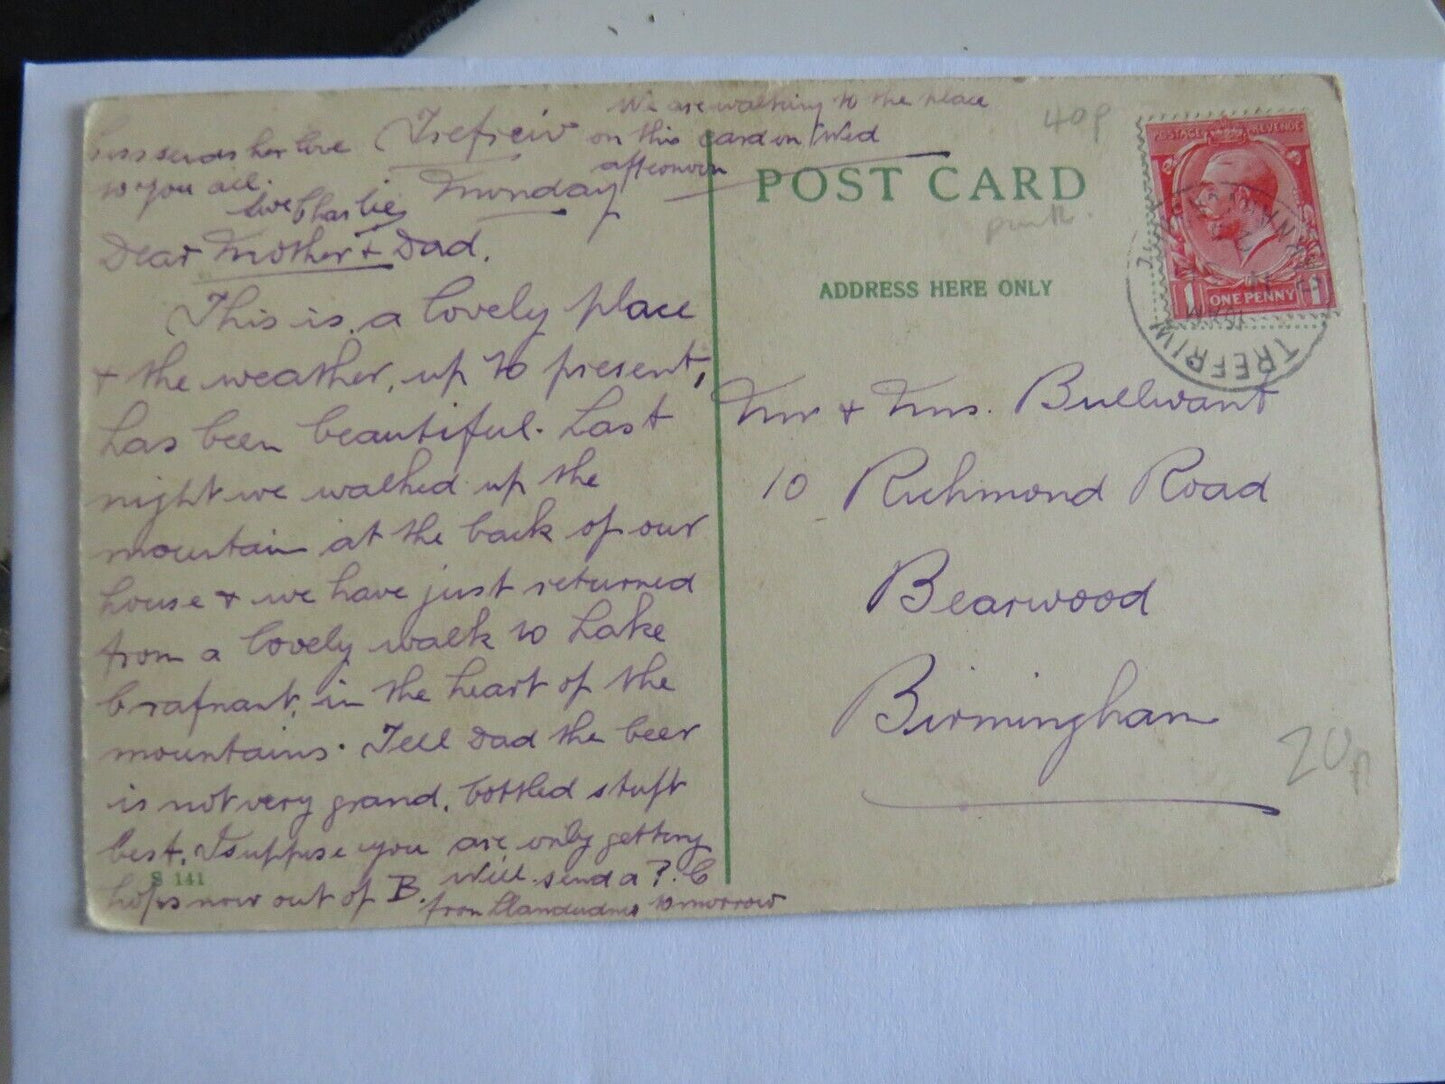 We are walking to the place
on this card on Wed
afternoon
sends her love
to you all.
love Charlie
Trefriw
Monday
Dear Mother + Dad.
This is a lovely place
+ the weather, up to present,
has been beautiful. Last
night we walked up the
mountain at the back of our
house + we have just returned
from a lovely walk to Lake
Crafnant, in the heart of the
mountains. Tell Dad the beer
is not very grand, bottled stuff
best. I suppose you are only getting
hops now out of B. Will send a P.C
from Llandudno tomorrow
S 141
POST CARD
ADDRESS HERE ONLY
40p
POSTAGE REVENUE
1 ONE PENNY 1
TREFRIW
Mr + Mrs. Bullivant
10 Richmond Road
Bearwood
Birmingham
20p